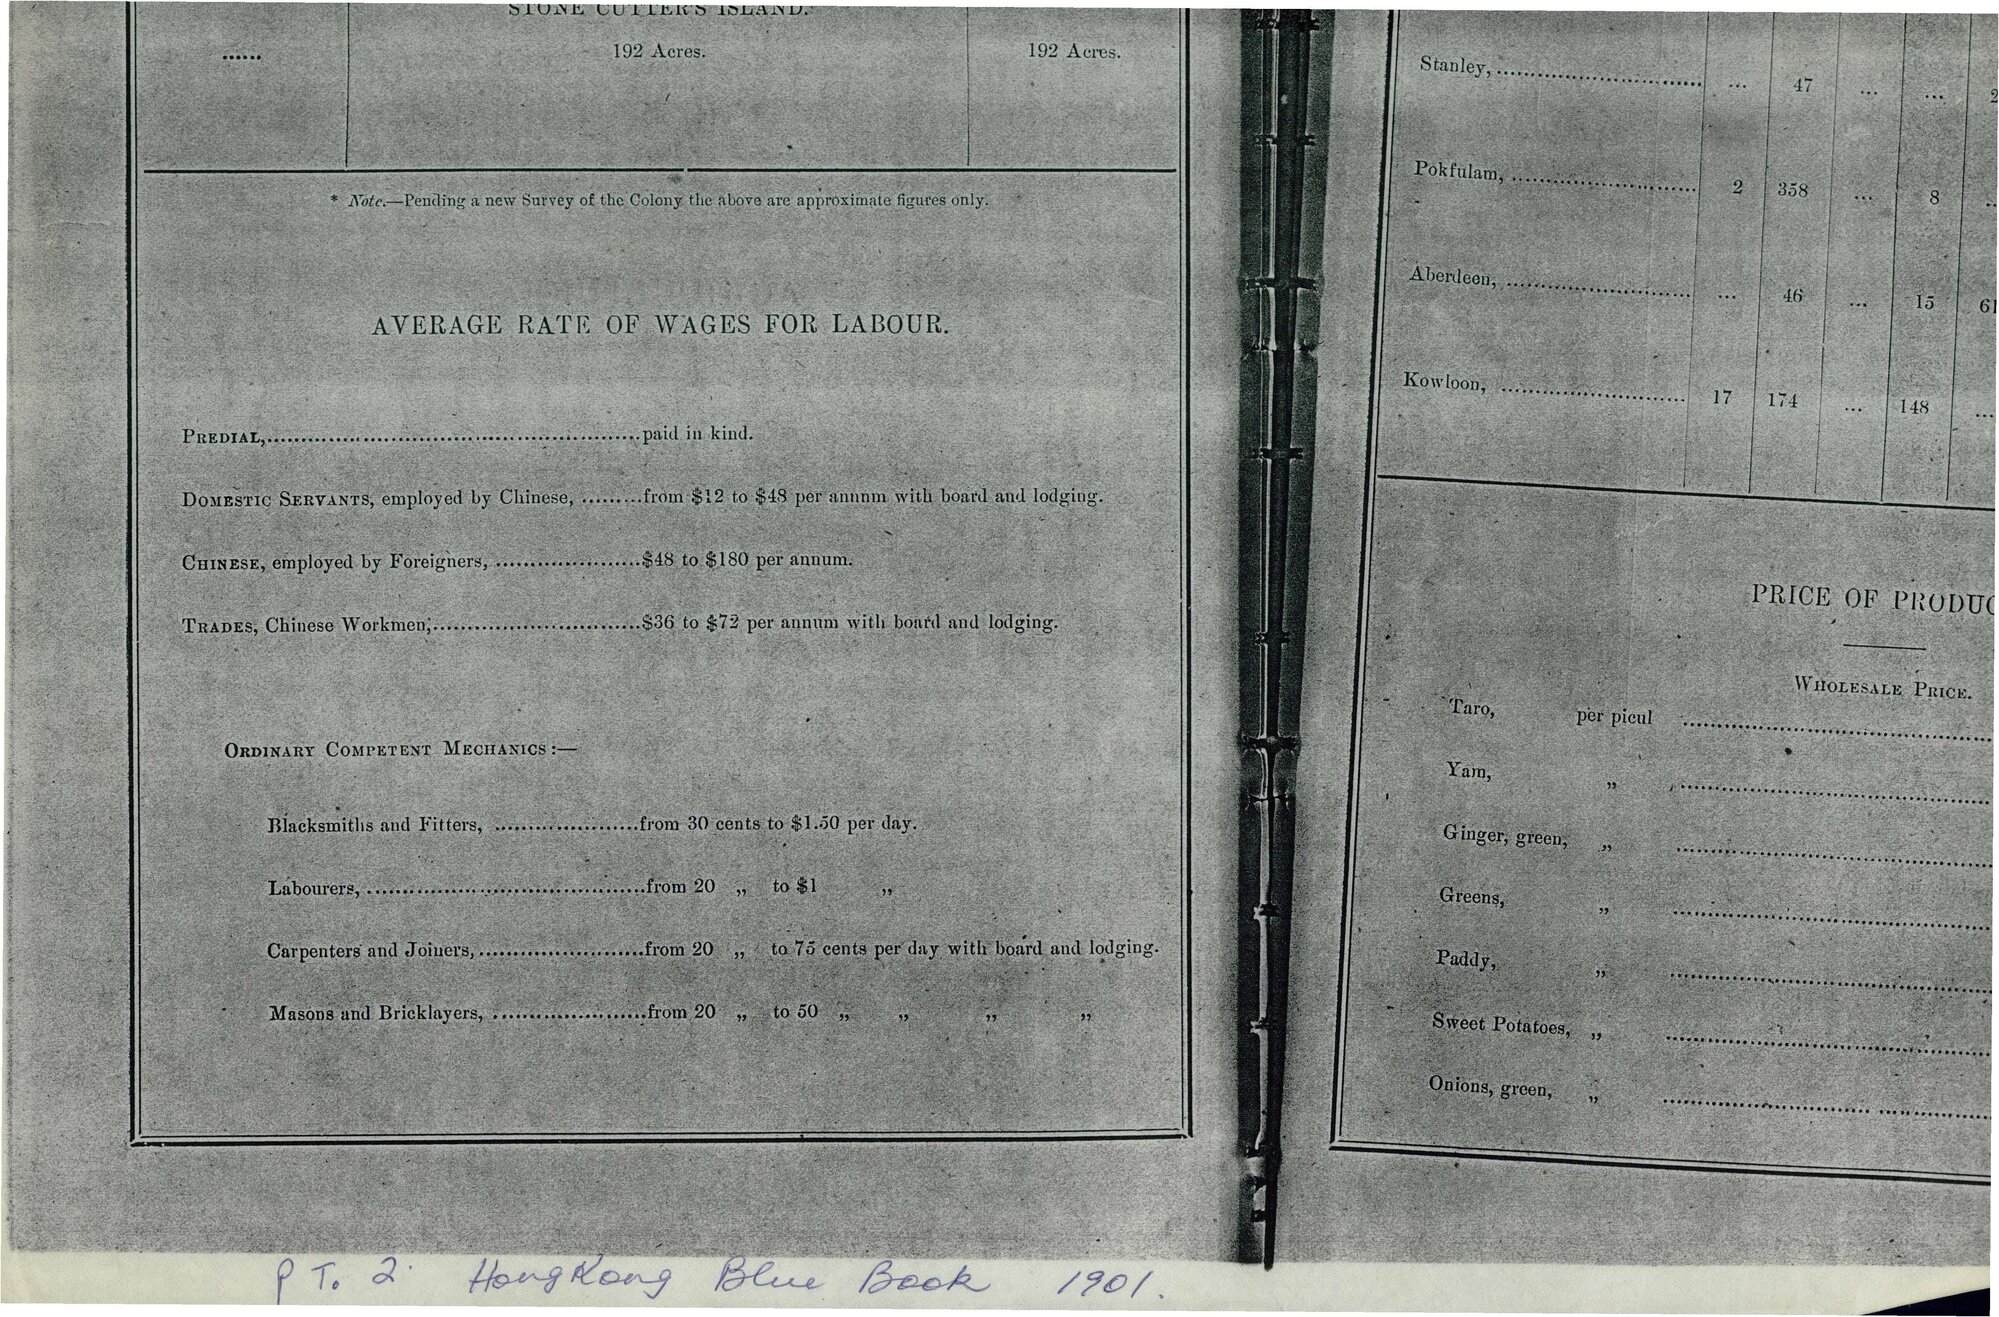 STONE CUTTER'S ISLAND.
...... 192 Acres. 192 Acres.
* Note.—Pending a new Survey of the Colony the above are approximate figures only.
AVERAGE RATE OF WAGES FOR LABOUR.
PREDIAL,........................................................paid in kind.
DOMESTIC SERVANTS, employed by Chinese, .........from $12 to $48 per annum with board and lodging.
CHINESE, employed by Foreigners, ......................$48 to $180 per annum.
TRADES, Chinese Workmen,...............................$36 to $72 per annum with board and lodging.
ORDINARY COMPETENT MECHANICS:—
Blacksmiths and Fitters, .....................from 30 cents to $1.50 per day.
Labourers, .........................................from 20 „ to $1 „
Carpenters and Joiners,........................from 20 „ to 75 cents per day with board and lodging.
Masons and Bricklayers, ......................from 20 „ to 50 „ „ „ „
Stanley, .............................. ... 47 ... ... 2
Pokfulam, ........................... 2 358 ... 8 ..
Aberdeen, ........................... ... 46 ... 15 61
Kowloon, ........................... 17 174 ... 148 ...
PRICE OF PRODUC
WHOLESALE PRICE.
Taro, per picul ..............................
Yam, „ ..............................
Ginger, green, „ ..............................
Greens, „ ..............................
Paddy, „ ..............................
Sweet Potatoes, „ ..............................
Onions, green, „ ..............................
PT. 2. HongKong Blue Book 1901.